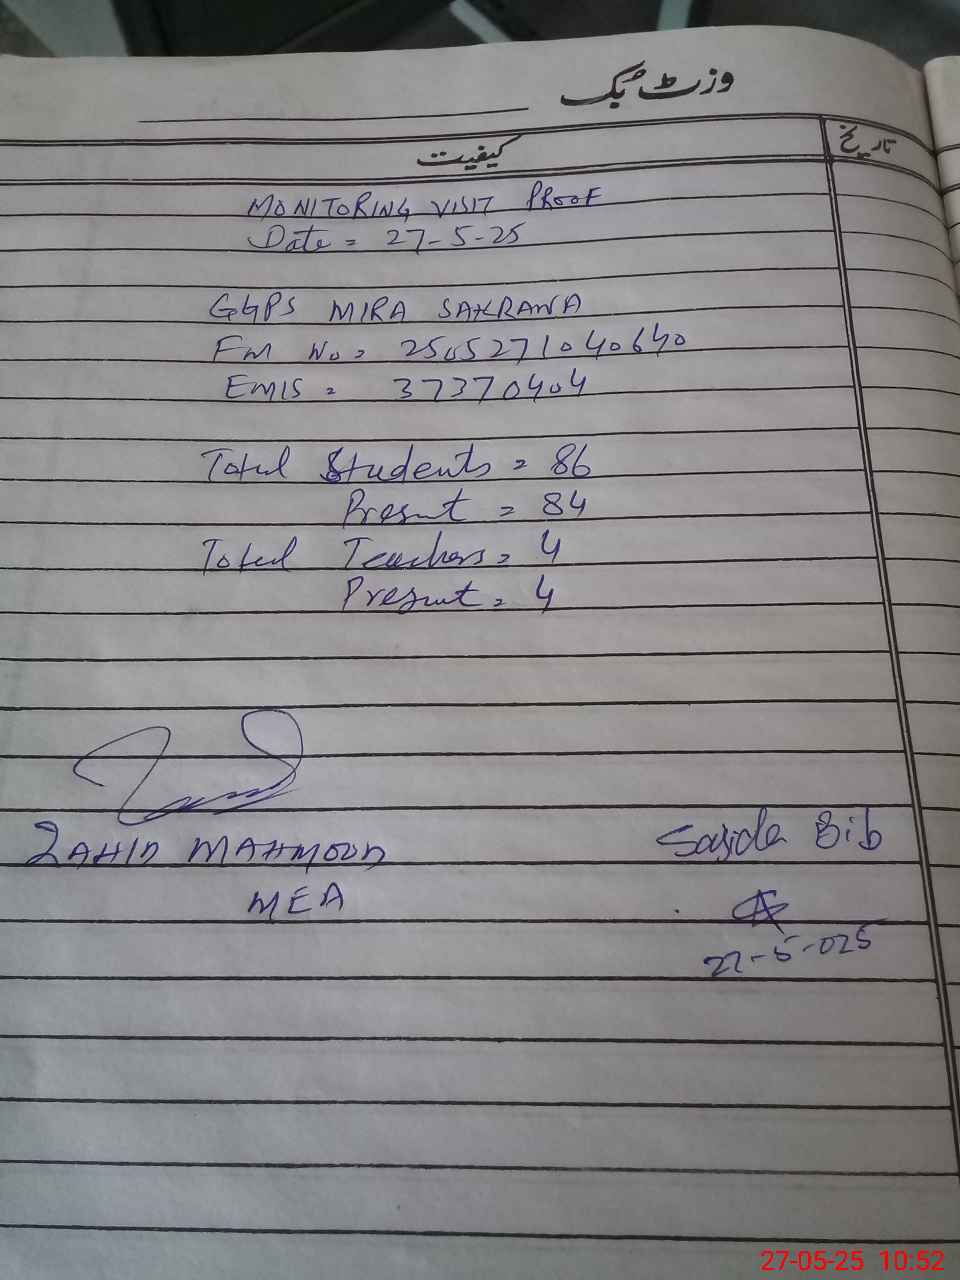 وزٹ بک
کیفیت
تاریخ
MONITORING VISIT PROOF
Date = 27-5-25
GGPS MIRA SAKRANA
FM No = 2505271040640
EMIS = 37370404
Total Students = 86
Present = 84
Total Teachers = 4
Present = 4
ZAHID MAHMOOD
MEA
Sajida Bib
27-5-025
27-05-25 10:52